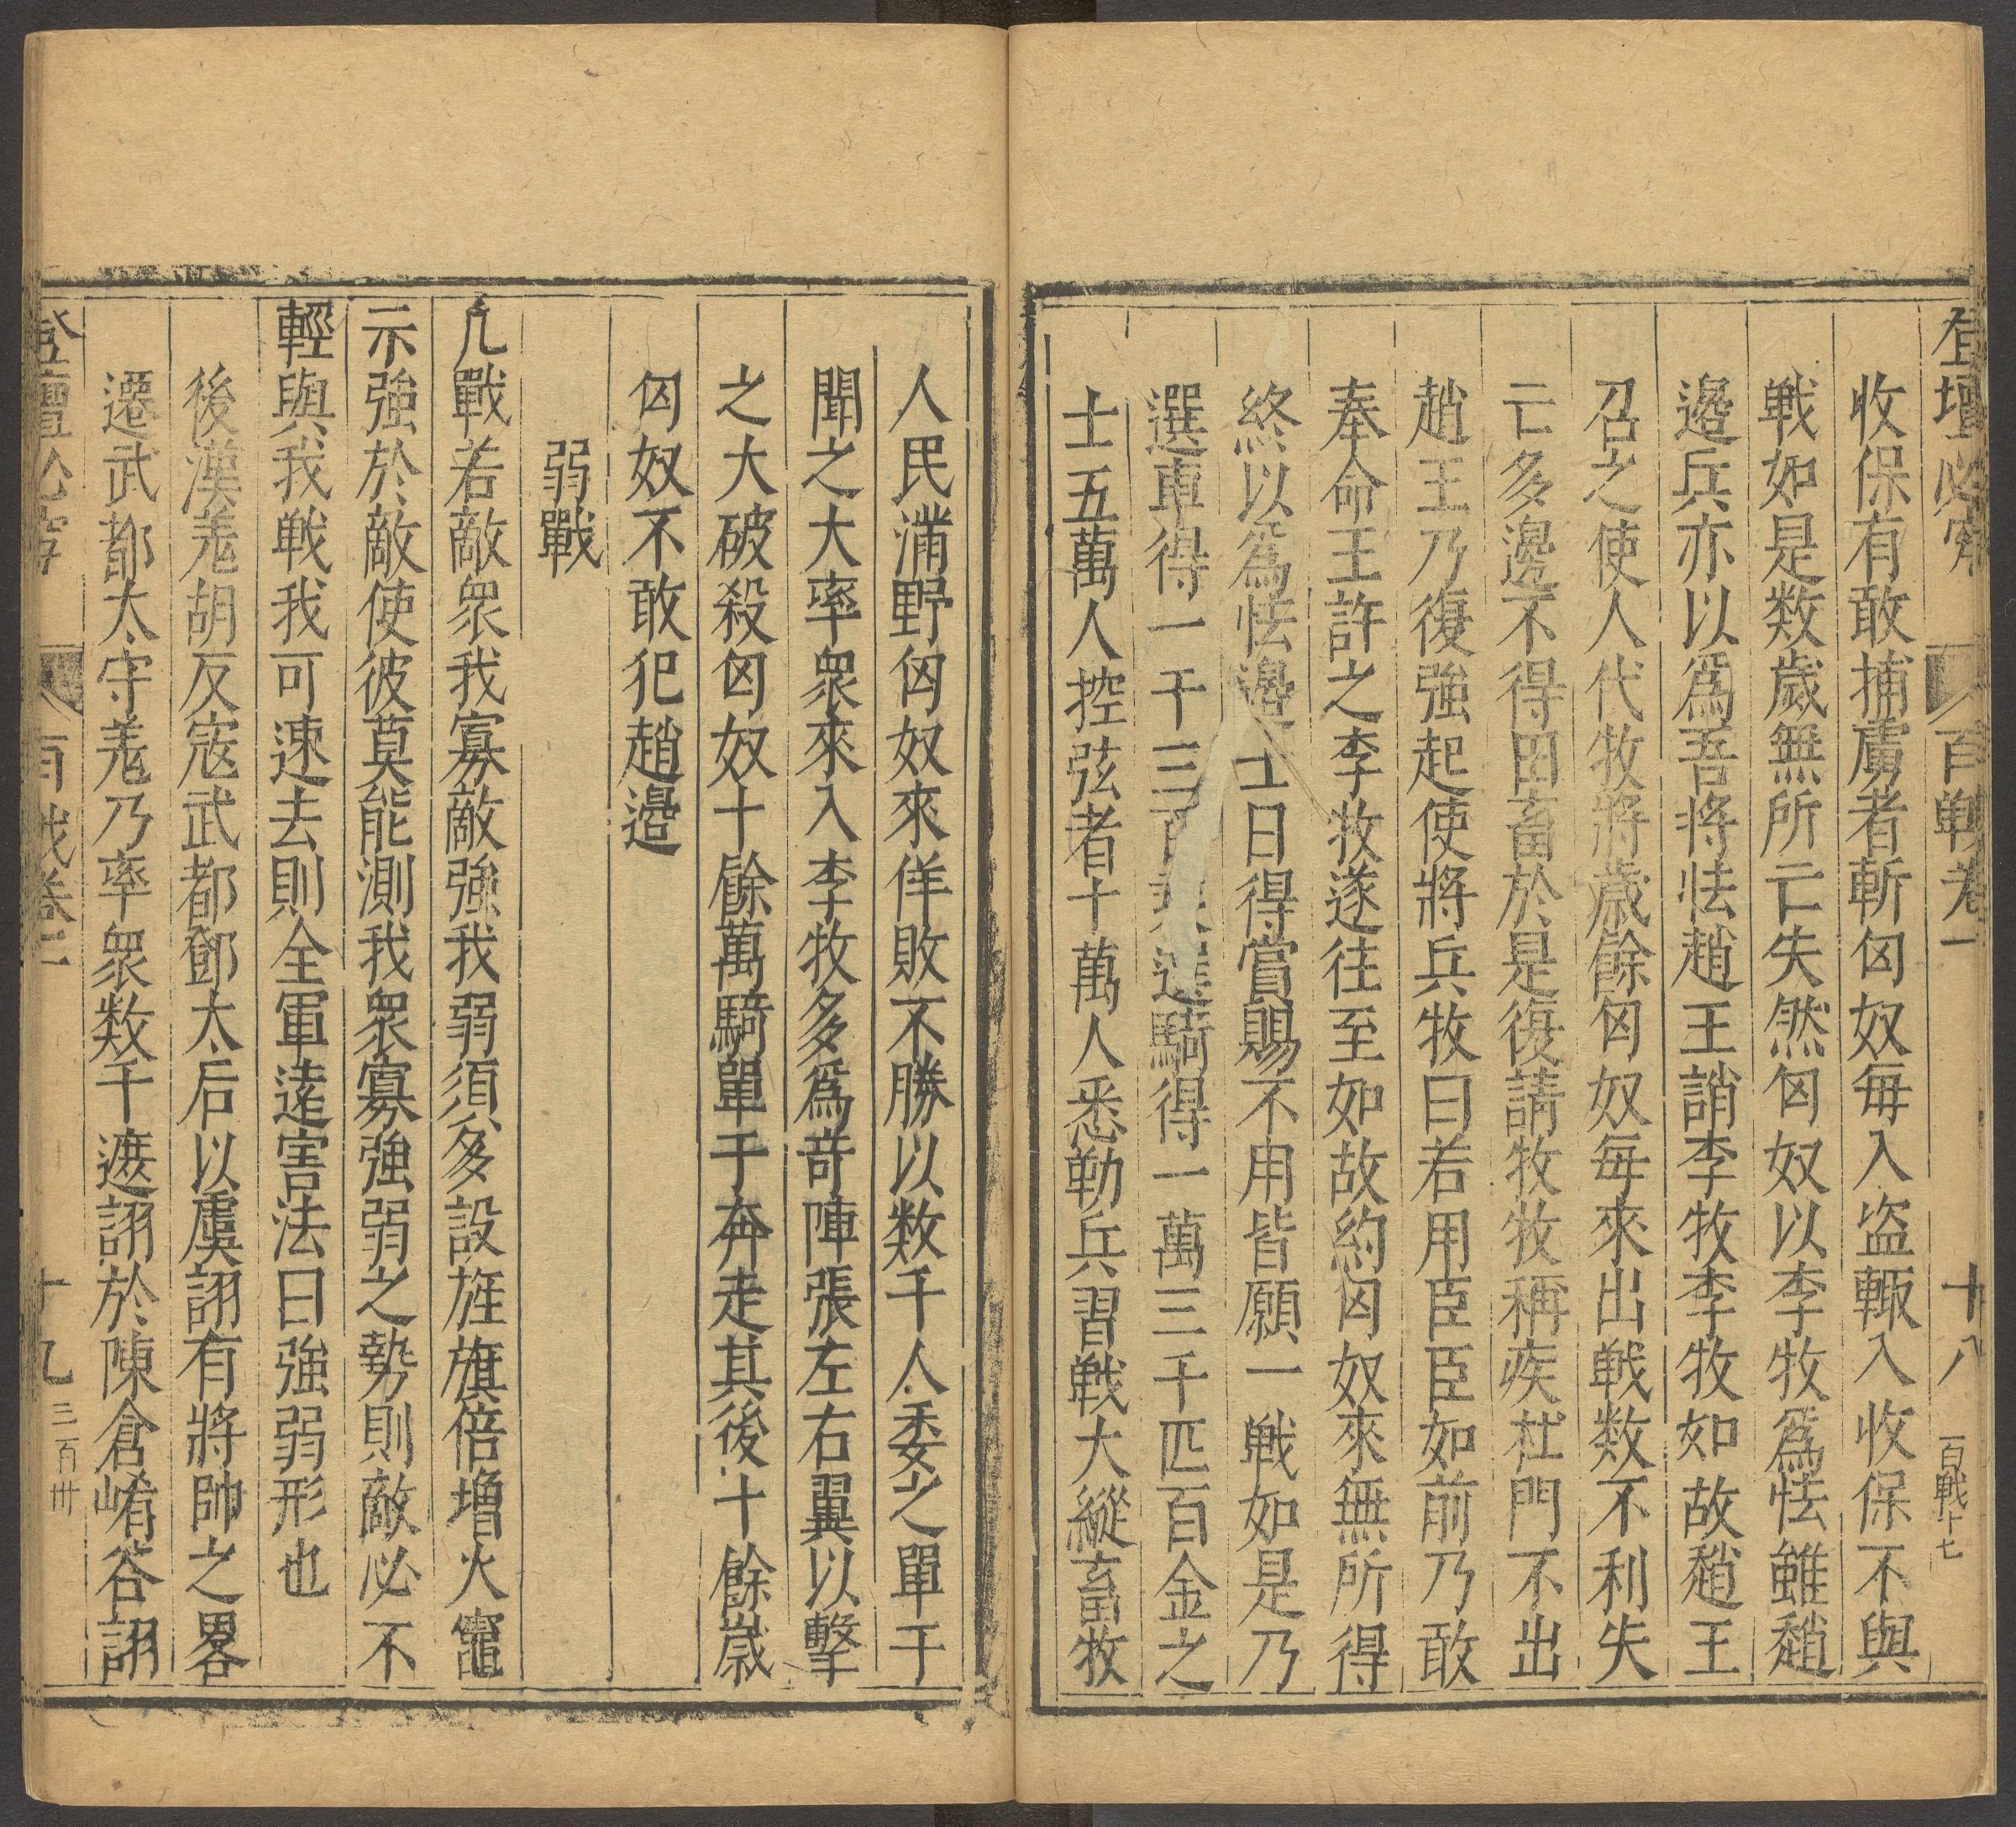 登壇必究 百戰卷一 十八 百戰十七
收保有敢捕虜者斬匈奴每入盜輙入收保不與
戦如是数歲無所亡失然匈奴以李牧爲怯雖趙
邉兵亦以爲吾將怯趙王誚李牧李牧如故趙王
召之使人代牧將歲餘匈奴每來出戦数不利失
亡多邊不得田畜於是復請牧牧稱疾杜門不出
趙王乃復強起使將兵牧曰若用臣臣如前乃敢
奉命王許之李牧遂往至如故約匈奴來無所得
終以爲怯邉士日得賞賜不用皆願一戦如是乃
選車得一千三百選騎得一萬三千匹百金之
士五萬人控弦者十萬人悉勒兵習戦大縱畜牧
人民滿野匈奴來佯敗不勝以数千人委之單于
聞之大率衆來入李牧多爲竒陣張左右翼以擊
之大破殺匈奴十餘萬騎單于奔走其後十餘歲
匈奴不敢犯趙邉
弱戰
凡戰若敵衆我寡敵強我弱須多設旌旗倍增火竈
示強於敵使彼莫能測我衆寡強弱之勢則敵必不
輕與我戦我可速去則全軍遠害法曰強弱形也
後漢羗胡反宼武都鄧太后以虞詡有將帥之畧
遷武都太守羗乃率衆数千遮詡於陳倉崤谷詡
登壇必究 百戰卷二 十九 三百卅